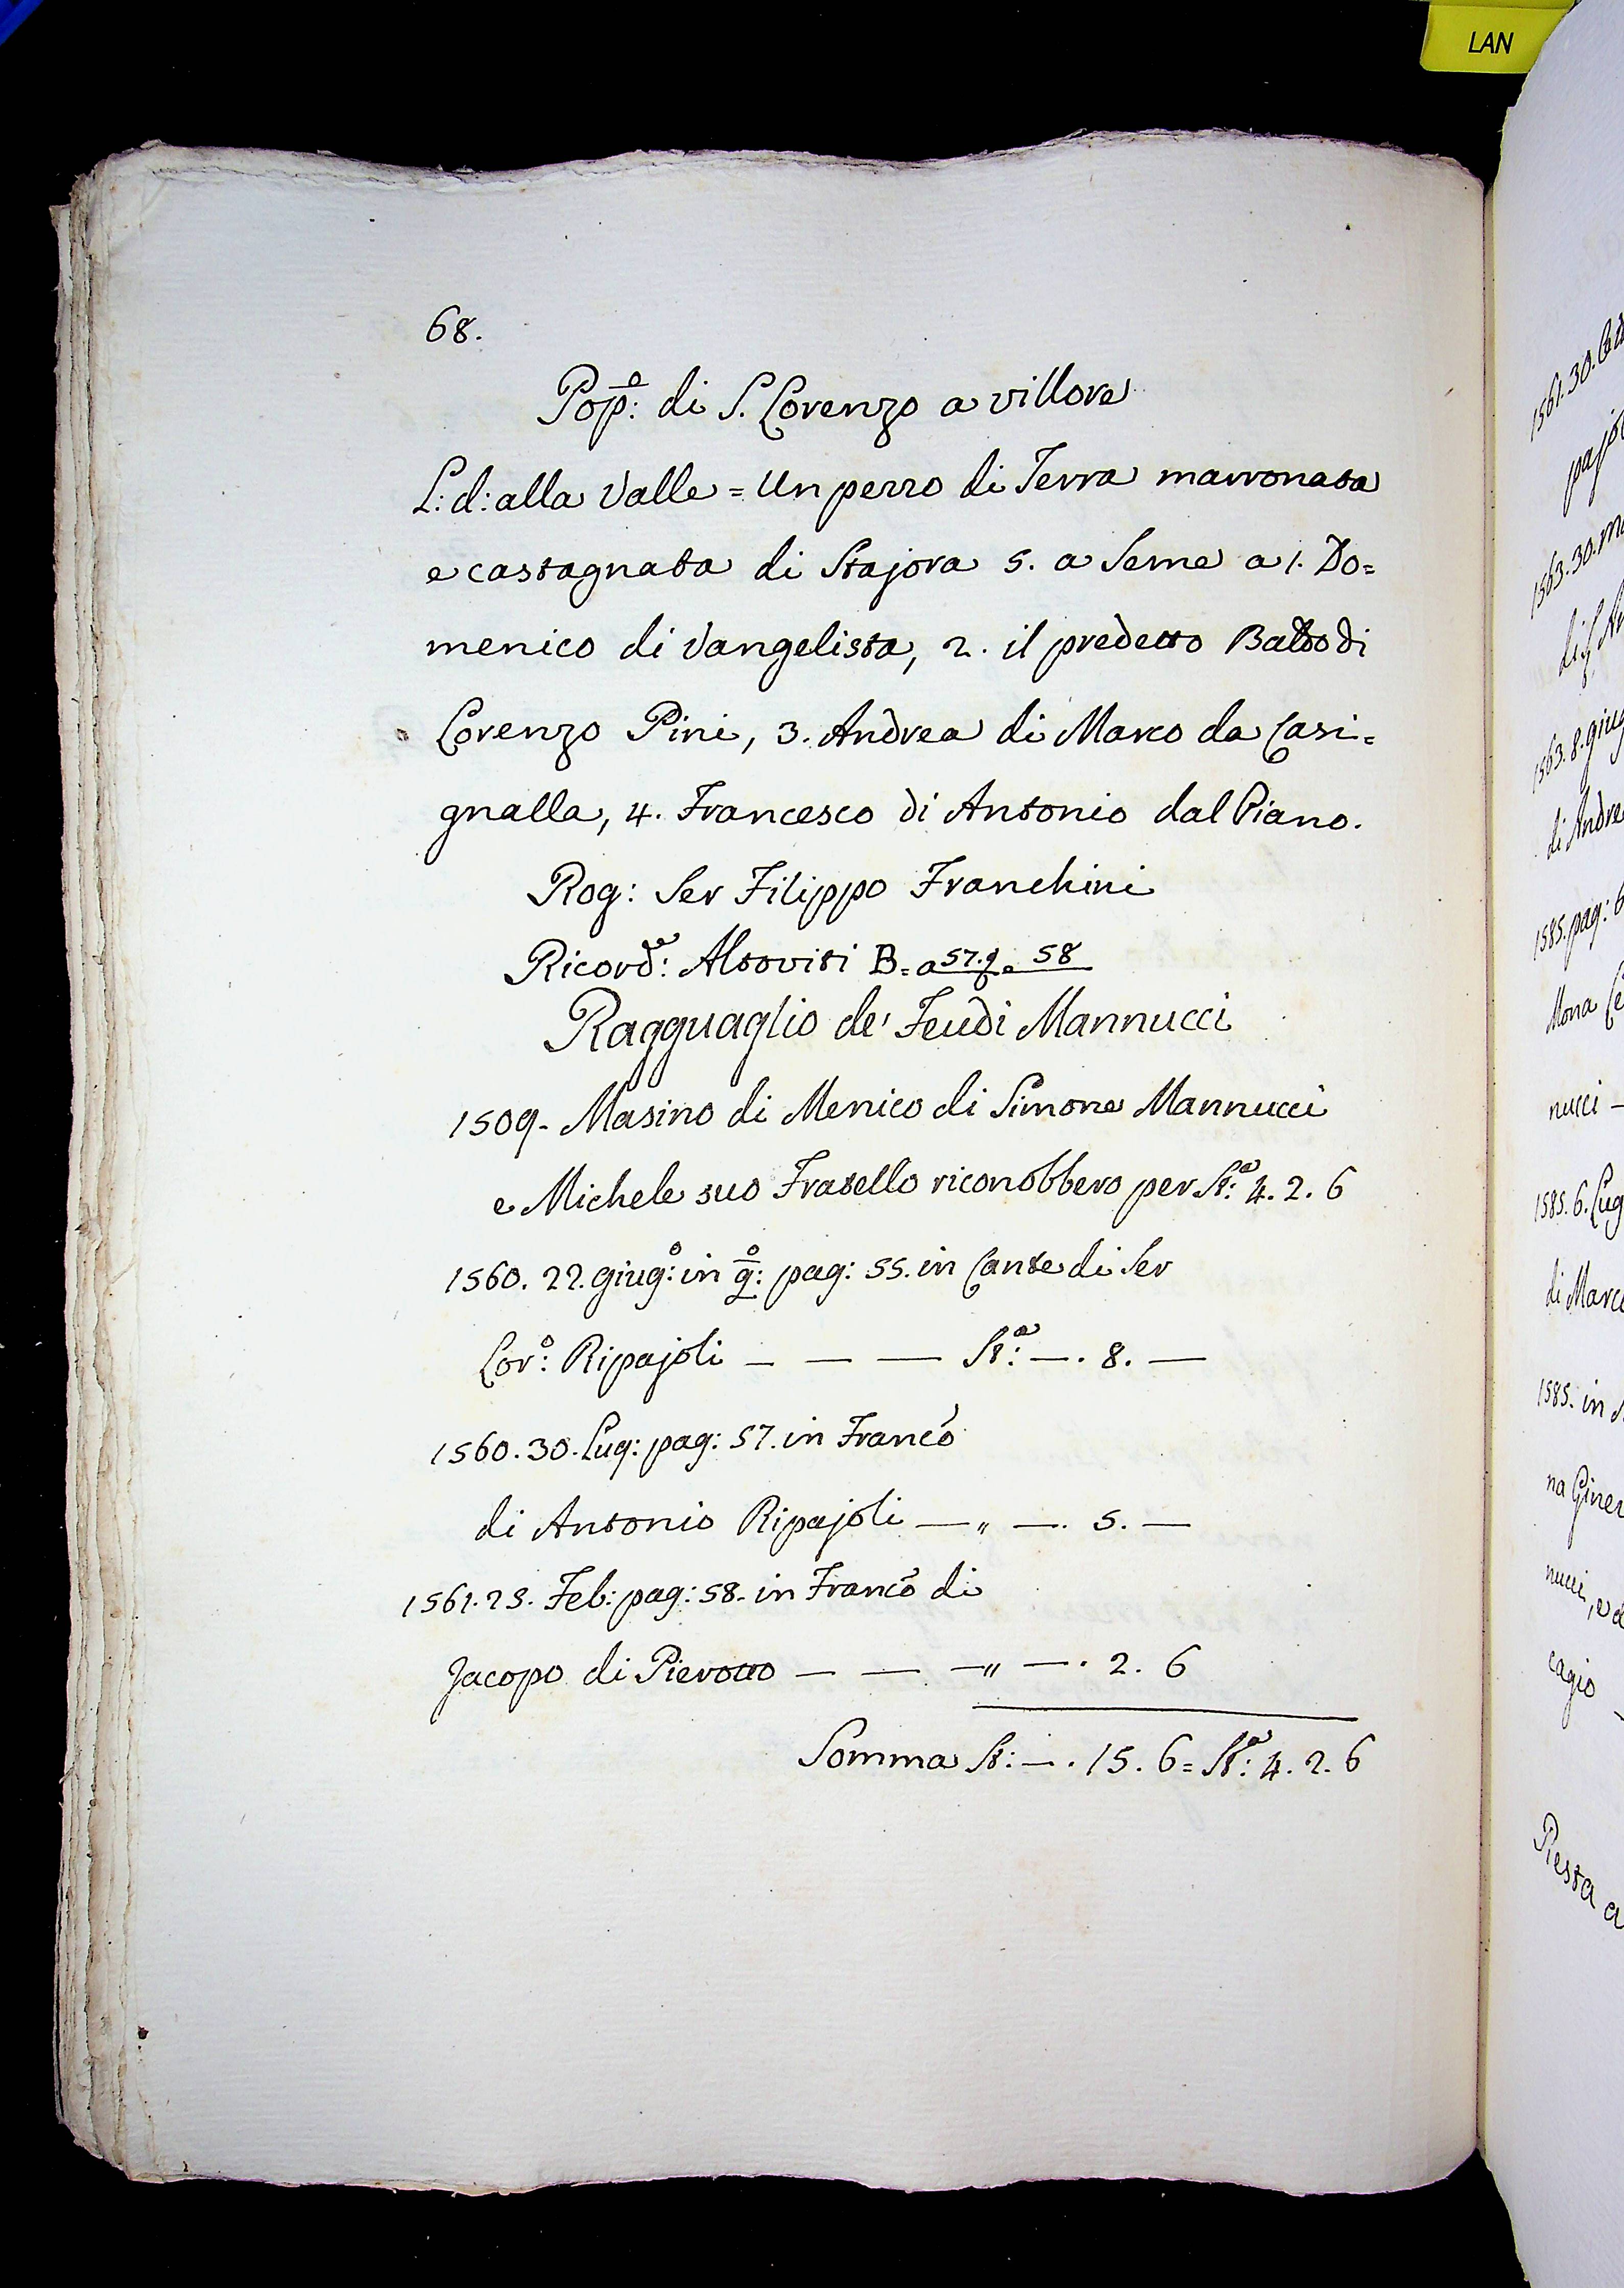 LAN
68.
Pop.o: di S. Lorenzo a villore
L: d: alla Valle = Un pezzo di Terra marronata
e castagnata di Stajora 5. a Seme a 1. Do=
menico di Vangelista, 2. il predetto Balto di
Lorenzo Pini, 3. Andrea di Marco da Casi=
gnalla, 4. Francesco di Antonio dal Piano.
Rog: Ser Filippo Franchini
Ricord.e: Altoviti B = a 57. e 58
Ragguaglio de' Feudi Mannucci
1509 - Masino di Menico di Simone Mannucci
e Michele suo Fratello riconobbero per St.a: 4. 2. 6
1560. 22. giug.o: in q.o: pag: 55. in Cante di Ser
Lor.o: Ripajoli — — — St.a: —. 8. —
1560. 30. Lug: pag: 57. in Franc.o
di Antonio Ripajoli — „ —. 5. —
1561. 23. Feb: pag: 58. in Franc.o di
Jacopo di Pierotto — — — „ —. 2. 6
Somma St: —. 15. 6 = St.a: 4. 2. 6
1561. 30.
1563. 30.
1563. 8. giug
di Andre
1585. pag: 6
Mona
nucci —
1585. 6. Lug
di Marco
1585. in
na Giner
nucci, e
cagio
Resta a